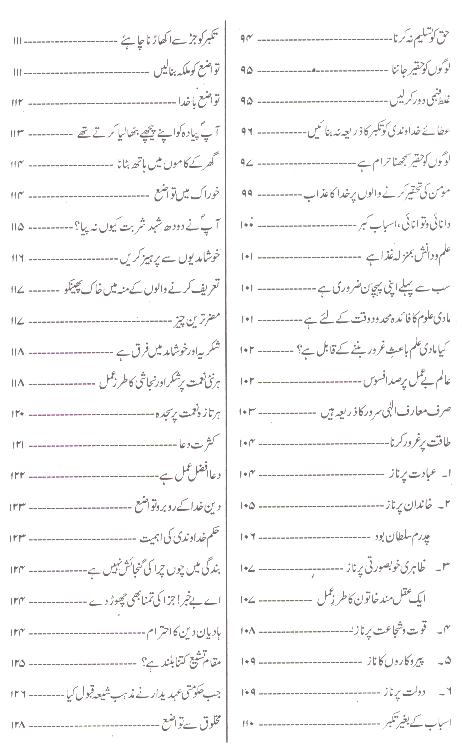 حق کو تسلیم نہ کرنا ۹۴
لوگوں کو حقیر جاننا ۹۵
غلط فہمی دور کر لیں ۹۵
عطائے خداوندی کو تکبر کا ذریعہ نہ بنائیں ۹۶
لوگوں کو حقیر سمجھنا حرام ہے ۹۷
مؤمن کی تحقیر کرنے والوں پر خدا کا عذاب ۹۹
دانائی و توانائی، اسباب کبر ۱۰۰
علم و دانش بمنزلہ غذا ہے ۱۰۱
سب سے پہلے اپنی پہچان ضروری ہے ۱۰۱
مادی علوم کا فائدہ محدود وقت کے لئے ہے ۱۰۱
کیا مادی علم باعث غرور بننے کے قابل ہے؟ ۱۰۲
عالم بے عمل پر صد افسوس ۱۰۲
صرف معارف الٰہی سرور کا ذریعہ ہیں ۱۰۳
طاقت پر غرور کرنا ۱۰۴
۱۔ عبادت پر ناز ۱۰۴
۲۔ خاندان پر ناز ۱۰۵
پدرم سلطان بود ۱۰۶
۳۔ ظاہری خوبصورتی پر ناز ۱۰۷
ایک عقل مند خاتون کا طرز عمل ۱۰۷
۴۔ قوت و شجاعت پر ناز ۱۰۸
۵۔ پیروکاروں کا ناز ۱۰۹
۶۔ دولت پر ناز ۱۰۹
اسباب کے بغیر تکبر ۱۱۰
تکبر کو جڑ سے اکھاڑنا چاہئے ۱۱۱
تواضع کو ملکہ بنا لیں ۱۱۱
تواضع با خدا ۱۱۲
آپؐ پیادہ کو اپنے پیچھے بٹھا لیا کرتے تھے ۱۱۳
گھر کے کاموں میں ہاتھ بٹانا ۱۱۴
خوراک میں تواضع ۱۱۴
آپؐ نے دودھ شہد شربت کیوں نہ پیا؟ ۱۱۵
خوشامدیوں سے پرہیز کریں ۱۱۶
تعریف کرنے والوں کے منہ میں خاک پھینکو ۱۱۷
مضر ترین چیز ۱۱۷
شکریہ اور خوشامد میں فرق ہے ۱۱۸
ہر نئی نعمت پر شکر اور نجاشی کا طرز عمل ۱۱۸
ہر تازہ نعمت پر سجدہ ۱۲۰
کثرت دعا ۱۲۱
دعا افضل عمل ہے ۱۲۲
دین خدا کے روبرو تواضع ۱۲۳
حکم خداوندی کی اہمیت ۱۲۳
بندگی میں چوں چرا کی گنجائش نہیں ہے ۱۲۴
اے بے خبر! جزا کی تمنا بھی چھوڑ دے ۱۲۴
ہادیان دین کا احترام ۱۲۴
مقام تشیع کتنا بلند ہے؟ ۱۲۵
جب حکومتی عہدیدار نے مذہب شیعہ قبول کیا ۱۲۶
مخلوق سے تواضع ۱۲۸